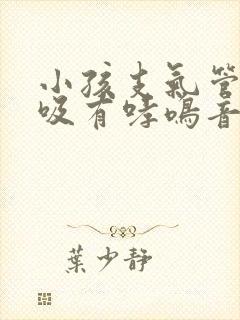 小孩支氣管
吸有哮鳴音
葉少靜